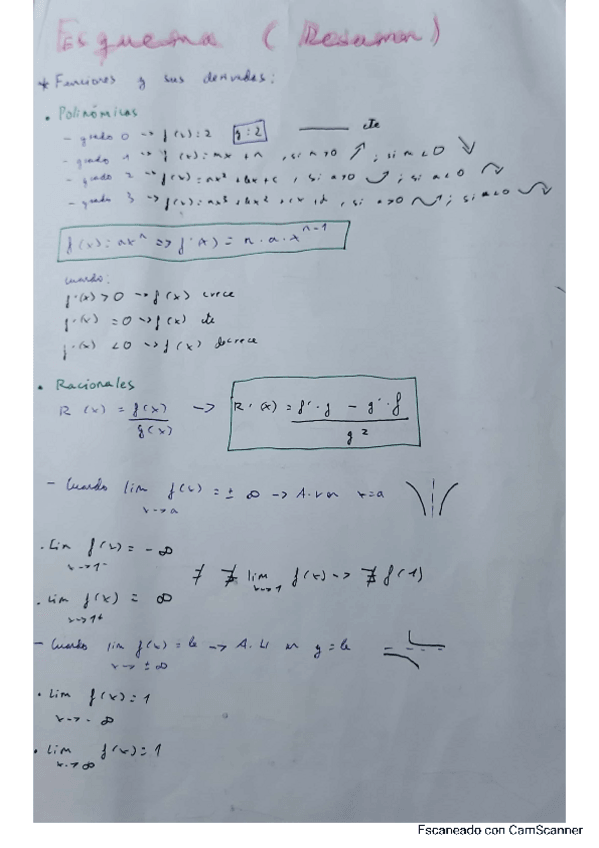 Esquema ( Resumen )
* Funciones y sus derivadas:
• Polinómicas
- grado 0 -> f(x)=2 y=2 cte
- grado 1 -> f(x)=mx+n, si m>0 ↗ ; si m<0 ↘
- grado 2 -> f(x)=ax²+bx+c, si a>0 ; si a<0
- grado 3 -> f(x)=ax³+bx²+cx+d, si a>0 ; si a<0
f(x)=ax^n => f'(x) = n·a·x^(n-1)
cuando:
f'(x)>0 -> f(x) crece
f'(x)=0 -> f(x) cte
f'(x)<0 -> f(x) decrece
• Racionales
R(x) = f(x)/g(x) -> R'(x) = (f'·g - g'·f)/g²
- Cuando lim x->a f(x) = ± ∞ -> A.V en x=a
· Lim x->1⁻ f(x) = -∞
∄ lim x->1 f(x) -> ∄ f(1)
· Lim x->1⁺ f(x) = ∞
- Cuando lim x->±∞ f(x) = k -> A.H en y=k
· Lim x->-∞ f(x) = 1
· Lim x->∞ f(x) = 1
Escaneado con CamScanner